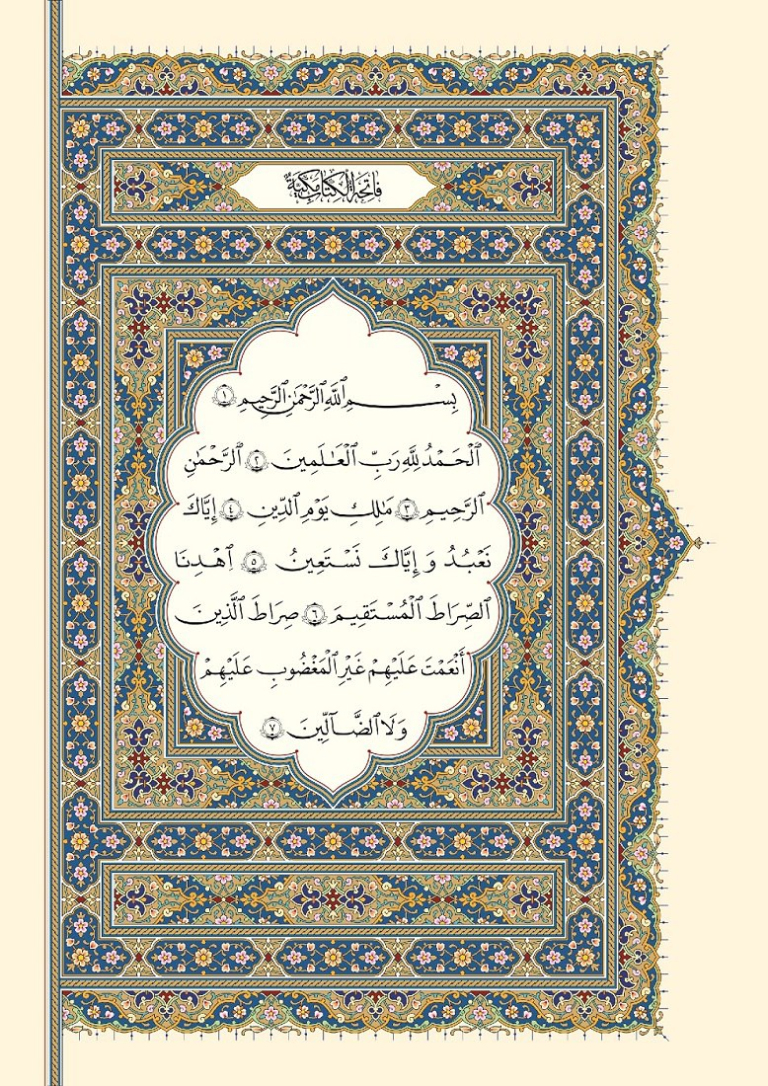 فَاتِحَةُ الْكِتَابِ مَكِّيَّةٌ
بِسْمِ ٱللَّهِ ٱلرَّحْمَٰنِ ٱلرَّحِيمِ ١
ٱلْحَمْدُ لِلَّهِ رَبِّ ٱلْعَٰلَمِينَ ٢ ٱلرَّحْمَٰنِ
ٱلرَّحِيمِ ٣ مَٰلِكِ يَوْمِ ٱلدِّينِ ٤ إِيَّاكَ
نَعْبُدُ وَ إِيَّاكَ نَسْتَعِينُ ٥ ٱهْدِنَا
ٱلصِّرَاطَ ٱلْمُسْتَقِيمَ ٦ صِرَاطَ ٱلَّذِينَ
أَنْعَمْتَ عَلَيْهِمْ غَيْرِ ٱلْمَغْضُوبِ عَلَيْهِمْ
وَلَا ٱلضَّآلِّينَ ٧